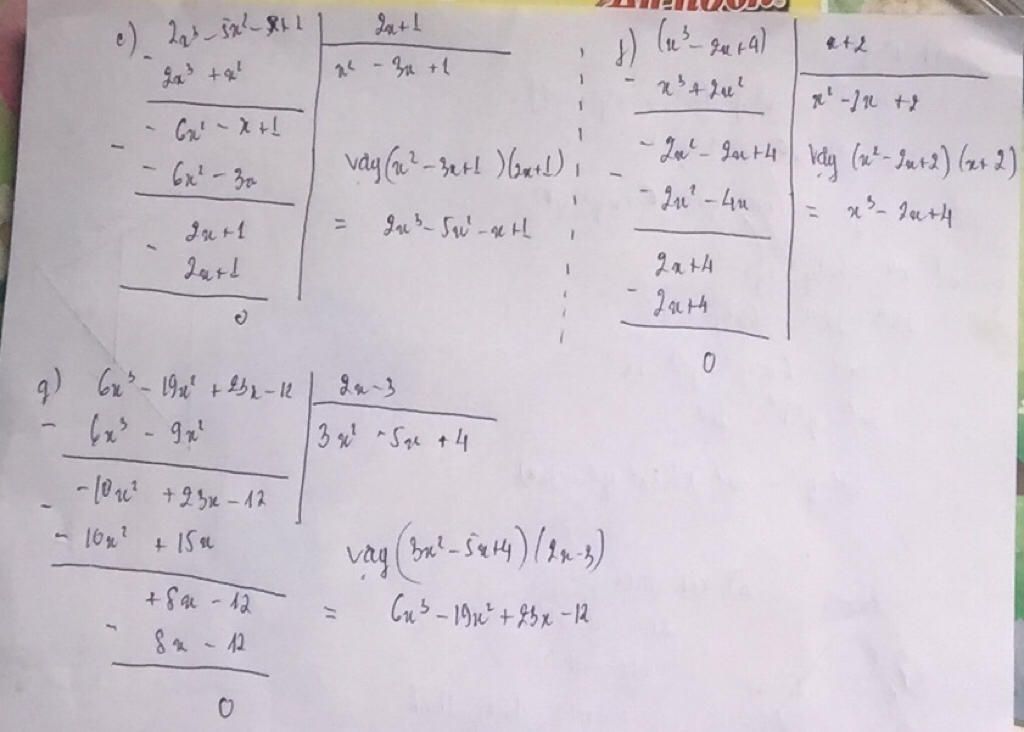 e) 2x³ - 5x² - x + 1 | 2x + 1
- 2x³ + x² | x² - 3x + 1
- 6x² - x + 1
- - 6x² - 3x
2x + 1
- 2x + 1
0
Vậy (x² - 3x + 1)(2x + 1)
= 2x³ - 5x² - x + 1
f) (x³ - 2x + 4) | x + 2
- x³ + 2x² | x² - 2x + 2
- 2x² - 2x + 4
- - 2x² - 4x
2x + 4
- 2x + 4
0
Vậy (x² - 2x + 2)(x + 2)
= x³ - 2x + 4
g) 6x³ - 19x² + 23x - 12 | 2x - 3
- 6x³ - 9x² | 3x² - 5x + 4
- 10x² + 23x - 12
- - 10x² + 15x
+ 8x - 12
- 8x - 12
0
Vậy (3x² - 5x + 4)(2x - 3)
= 6x³ - 19x² + 23x - 12